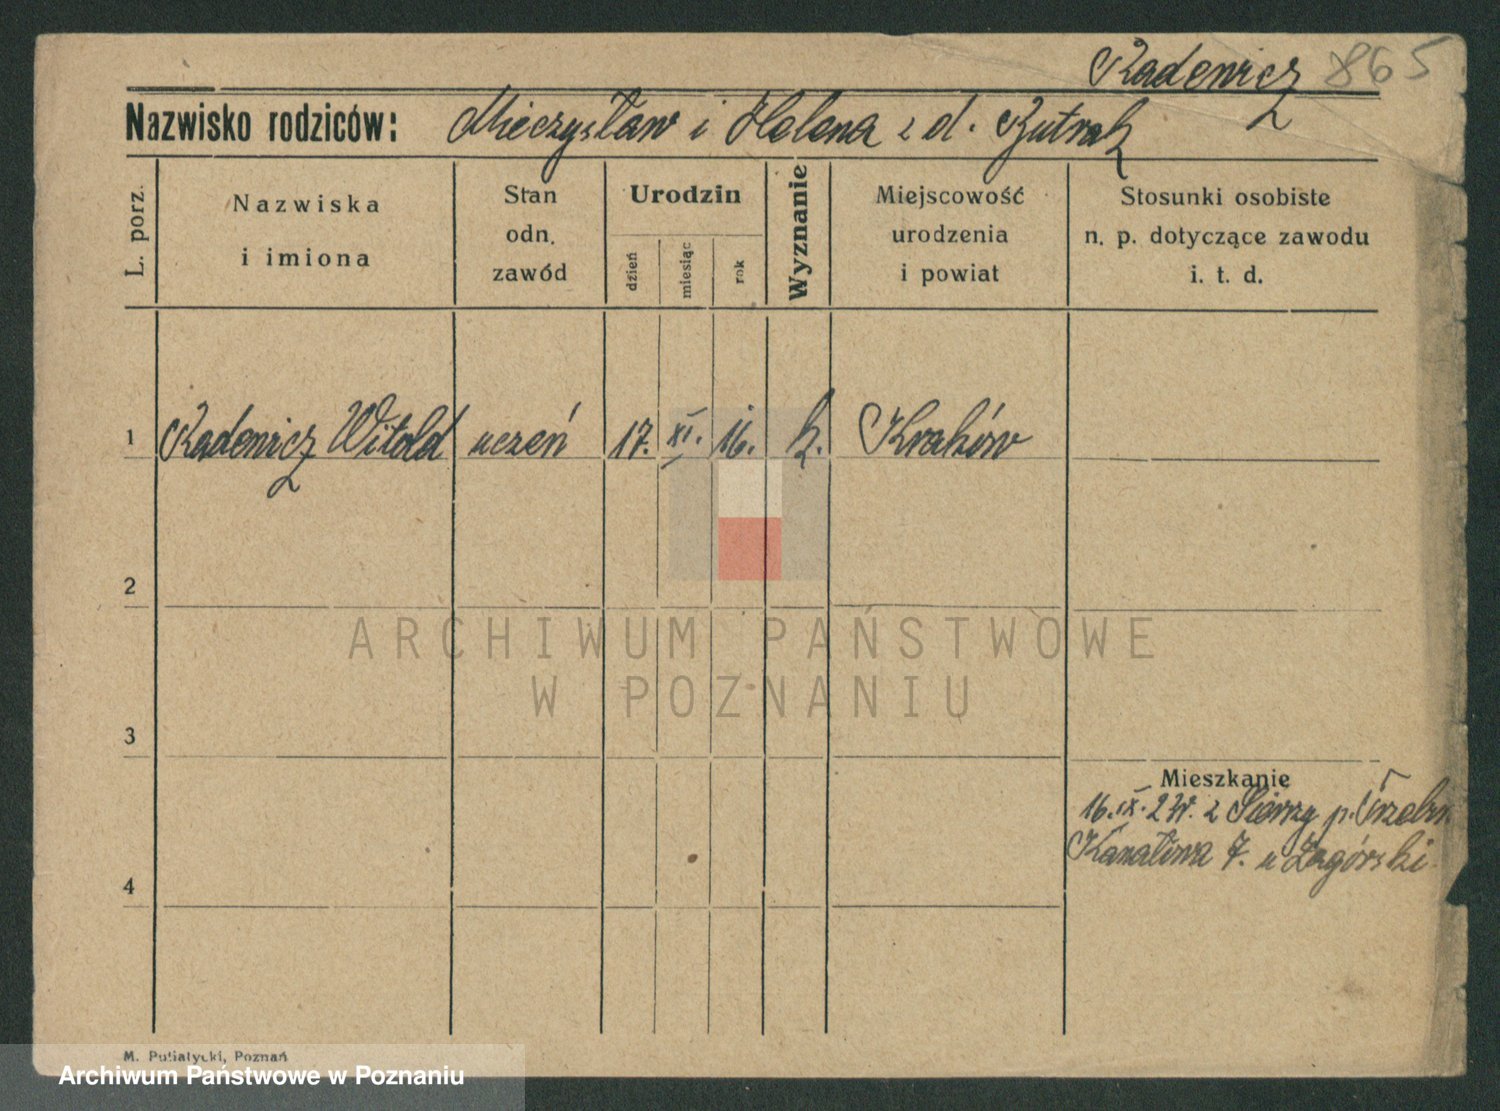 Radewicz 865
Nazwisko rodziców: Mieczysław i Helena z d.
L. porz.
Nazwiska
i imiona
Stan
odn.
zawód
Urodzin
dzień
miesiąc
rok
Wyznanie
Miejscowość
urodzenia
i powiat
Stosunki osobiste
n. p. dotyczące zawodu
i. t. d.
1 Radewicz Witold uczeń 17. XI. 16. k. Kraków
2
ARCHIWUM PAŃSTWOWE
W POZNANIU
3
Mieszkanie
16. IX. z Sierszy p.
Kanałowa 7. u Zagórski
4
M. Putiatycki, Poznań
Archiwum Państwowe w Poznaniu